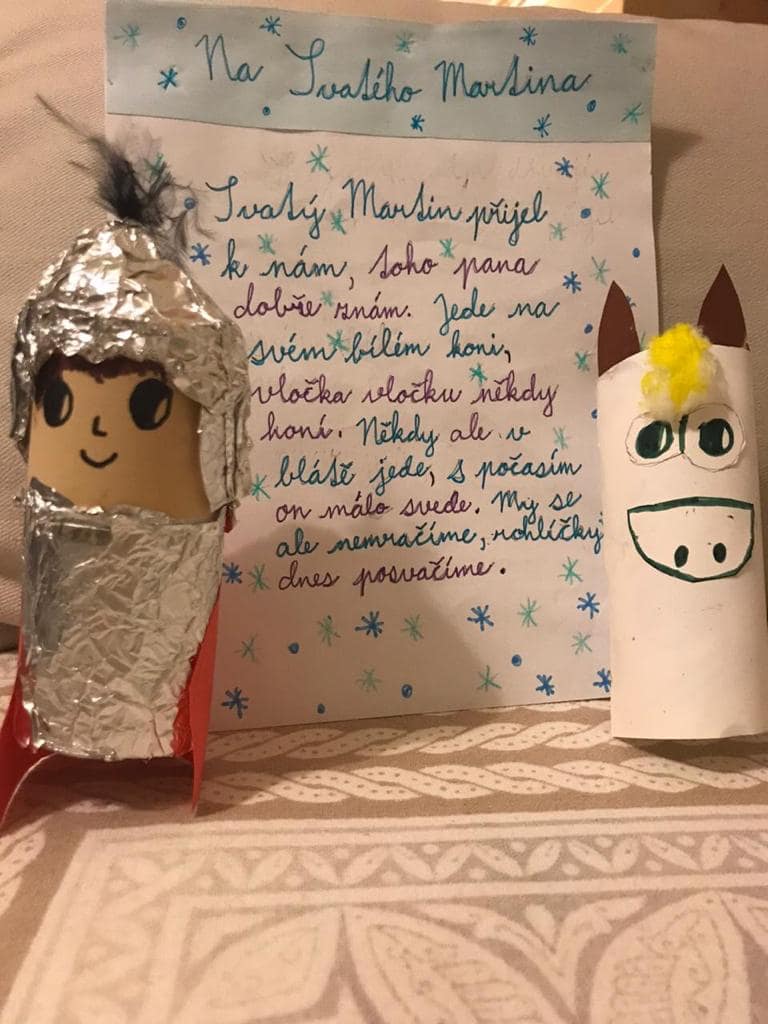 Na Svatého Martina
Svatý Martin přijel
k nám, toho pana
dobře znám. Jede na
svém bílém koni,
vločka vločku někdy
honí. Někdy ale v
blátě jede, s počasím
on málo svede. My se
ale nemračíme, rohlíčky
dnes posvačíme.